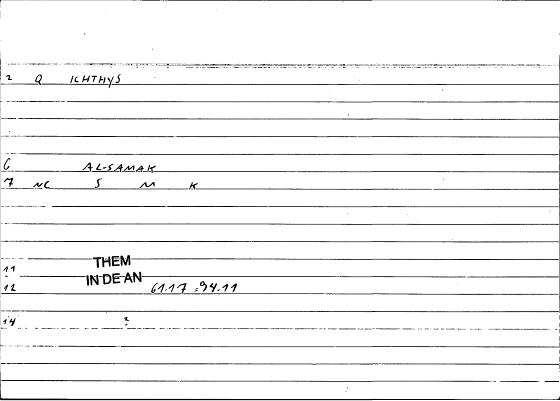 2 Q ICHTHYS
6 AL-SAMAK
7 NC S M K
THEM
11
IN DE AN
12 61.17 = 94.11
14 2